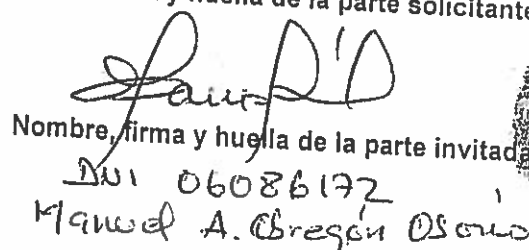 y huella de la parte solicitante
Nombre, firma y huella de la parte invitad
DNI 06086172
Manuel A. Obregón Osorio